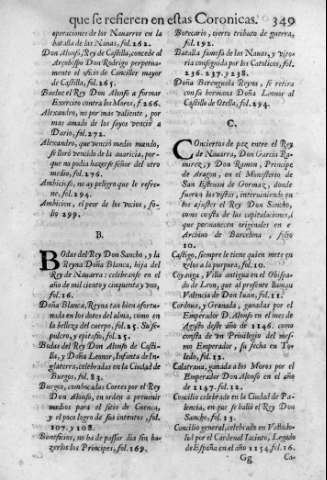 que se refieren en estas Coronicas. 349
operaciones de los Navarros en la
batalla de las Navas, fol. 262.
Don Alonso, Rey de Castilla, concede al
Arçobispo Don Rodrigo perpetua-
mente el oficio de Canciller mayor
de Castilla, fol. 265.
Buelve el Rey Don Alonso a formar
Exercito contra los Moros, f. 266.
Alexandro, no por mas valiente, por
mas amado de los suyos venciò a
Dario, fol. 272.
Alexandro, que venciò medio mundo,
se llorò vencido de la avaricia, por-
que no podia hazerse señor del otro
medio, fol. 276.
Ambicioso, no ay peligro que le refre-
ne, fol. 294.
Ambicion, el peor de los vicios, fo-
lio 299.
B.
Bodas del Rey Don Sancho, y la
Reyna Doña Blanca, hija del
Rey de Navarra: celebranse en el
año de mil ciento y cinquenta y vno,
fol. 16.
Doña Blanca, Reyna tan bien afortu-
nada en los dotes del alma, como en
la belleza del cuerpo, fol. 25. Su se-
pulcro, y epitafio, fol. 25.
Bodas del Rey Don Alonso de Casti-
lla, y Doña Leonor, Infanta de In-
glaterra, celebradas en la Ciudad de
Burgos, fol. 83.
Burgos, convocadas Cortes por el Rey
Don Alonso, en orden a prevenir
medios para el sitio de Cuenca,
y el poco logro de sus intentos, fol.
107. y 108.
Beneficios, no ha de passar dia sin ha-
zerlos los Principes, fol. 169.
Botecario, cierto tributo de guerra,
fol. 192.
Batalla famosa de las Navas, y vito-
ria conseguida por los Catolicos, fol.
236. 237. y 238.
Doña Berenguela Reyna, se retira
con su hermana Doña Leonor al
Castillo de Otella, fol. 294.
C.
Conciertos de paz entre el Rey
de Navarra, Don Garcia Ra-
mirez, y Don Ramon, Principe
de Aragon, en el Monasterio de
San Estevan de Gormaz, donde
fueron vistas, y interviniendo en
los ajustes el Rey Don Sancho,
como consta de las capitulaciones, q
que permanecen originales en el
Archivo de Barcelona, folio
10.
Castigo, siempre le tiene quien mete su
zelos a la purpura, fol. 10.
Coyanga, Villa antigua en el Obispa-
do de Leon, que al presente llaman
Valencia de Don Iuan, fol. 11.
Cordova, y Granada, ganadas por el
Emperador D. Alonso en el mes de
Agosto deste año de 1146. como
consta de vn Privilegio del mesmo
Emperador, su fecha en To-
ledo, fol. 12.
Calatrava, ganada a los Moros por el
Emperador Don Alonso en el año
de 1147. fol. 12.
Concilio celebrado en la Ciudad de Pa-
lencia, en que se hallò el Rey Don
Sancho, fol. 13.
Concilio general, celebrado en Vallado-
lid por el Cardenal Iacinto, Legado
de España en el año 1154. fol. 16.
Gg Ca-